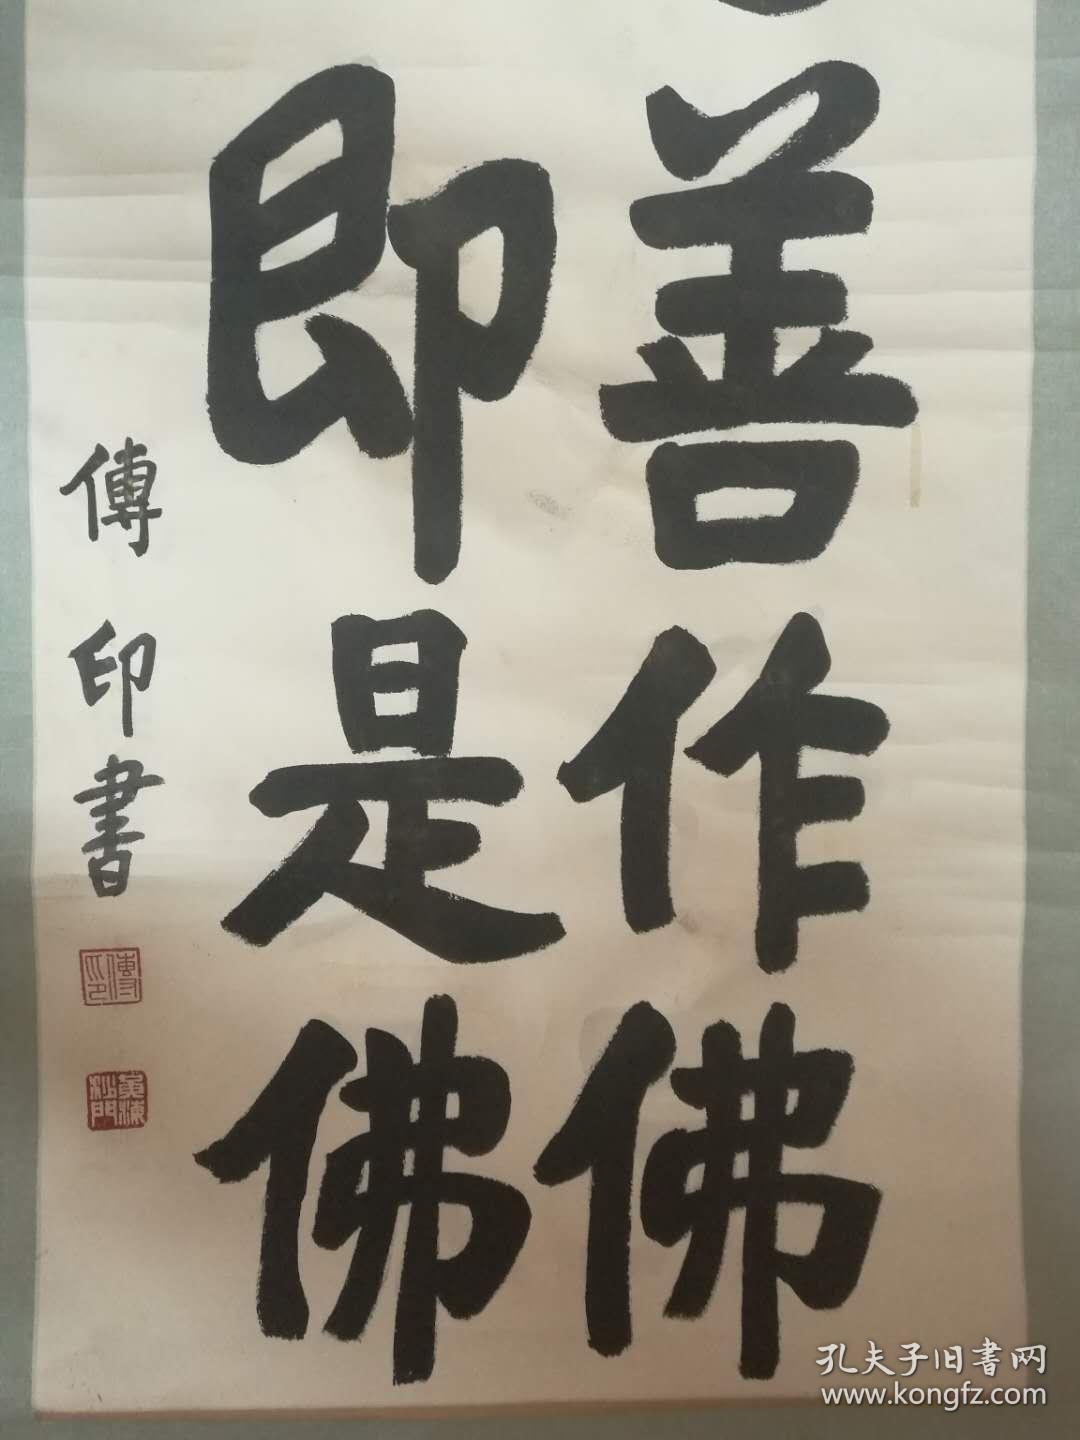 善作佛
即是佛
傳印書
傳印
沙門
孔夫子旧書网
www.kongfz.com